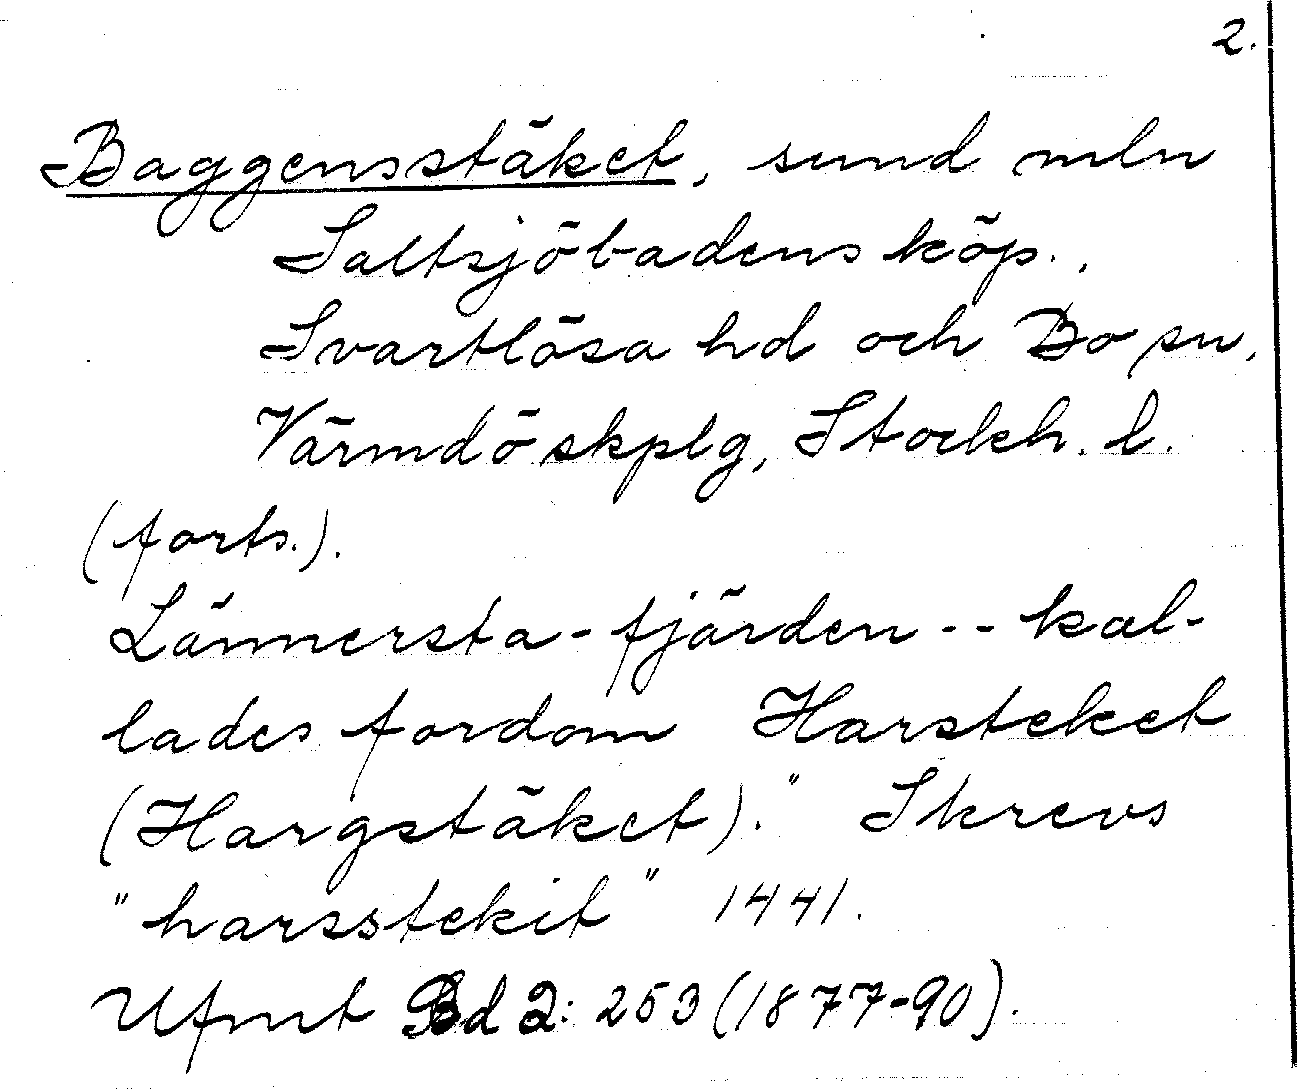 2.
Baggensstäket, sund mln
Saltsjöbadens köp.,
Svartlösa hd och Bo sn,
Värmdö skplg, Stockh. l.
(forts.).
Lännersta-fjärden -- kal-
lades fordom Harsteket
(Hargstäket)." Skrevs
"harsstekit" 1441.
Ufmt Bd 2: 253 (1877-90).